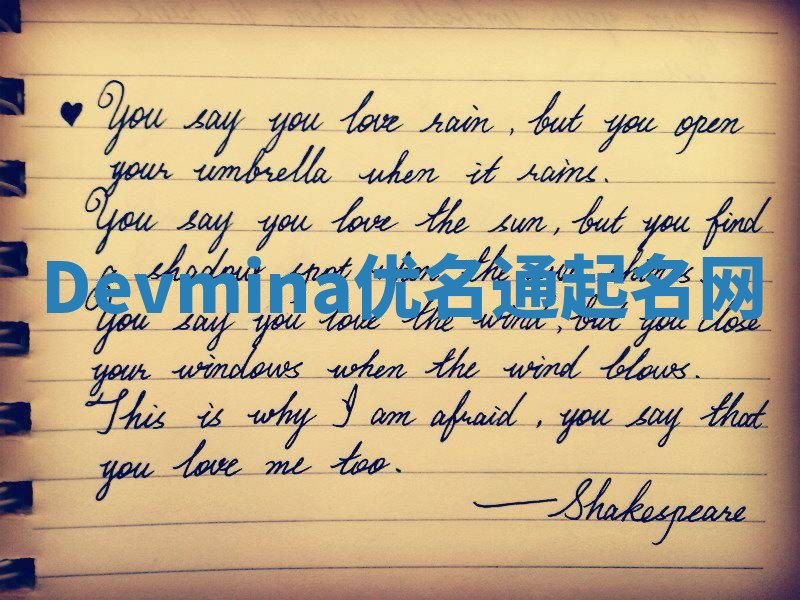 ♥ You say you love rain, but you open
your umbrella when it rains.
You say you love the sun, but you find
a shadow spot when the sun shines.
Devmina优名通起名网
You say you love the wind, but you close
your windows when the wind blows.
This is why I am afraid, you say that
you love me too.
—Shakespeare